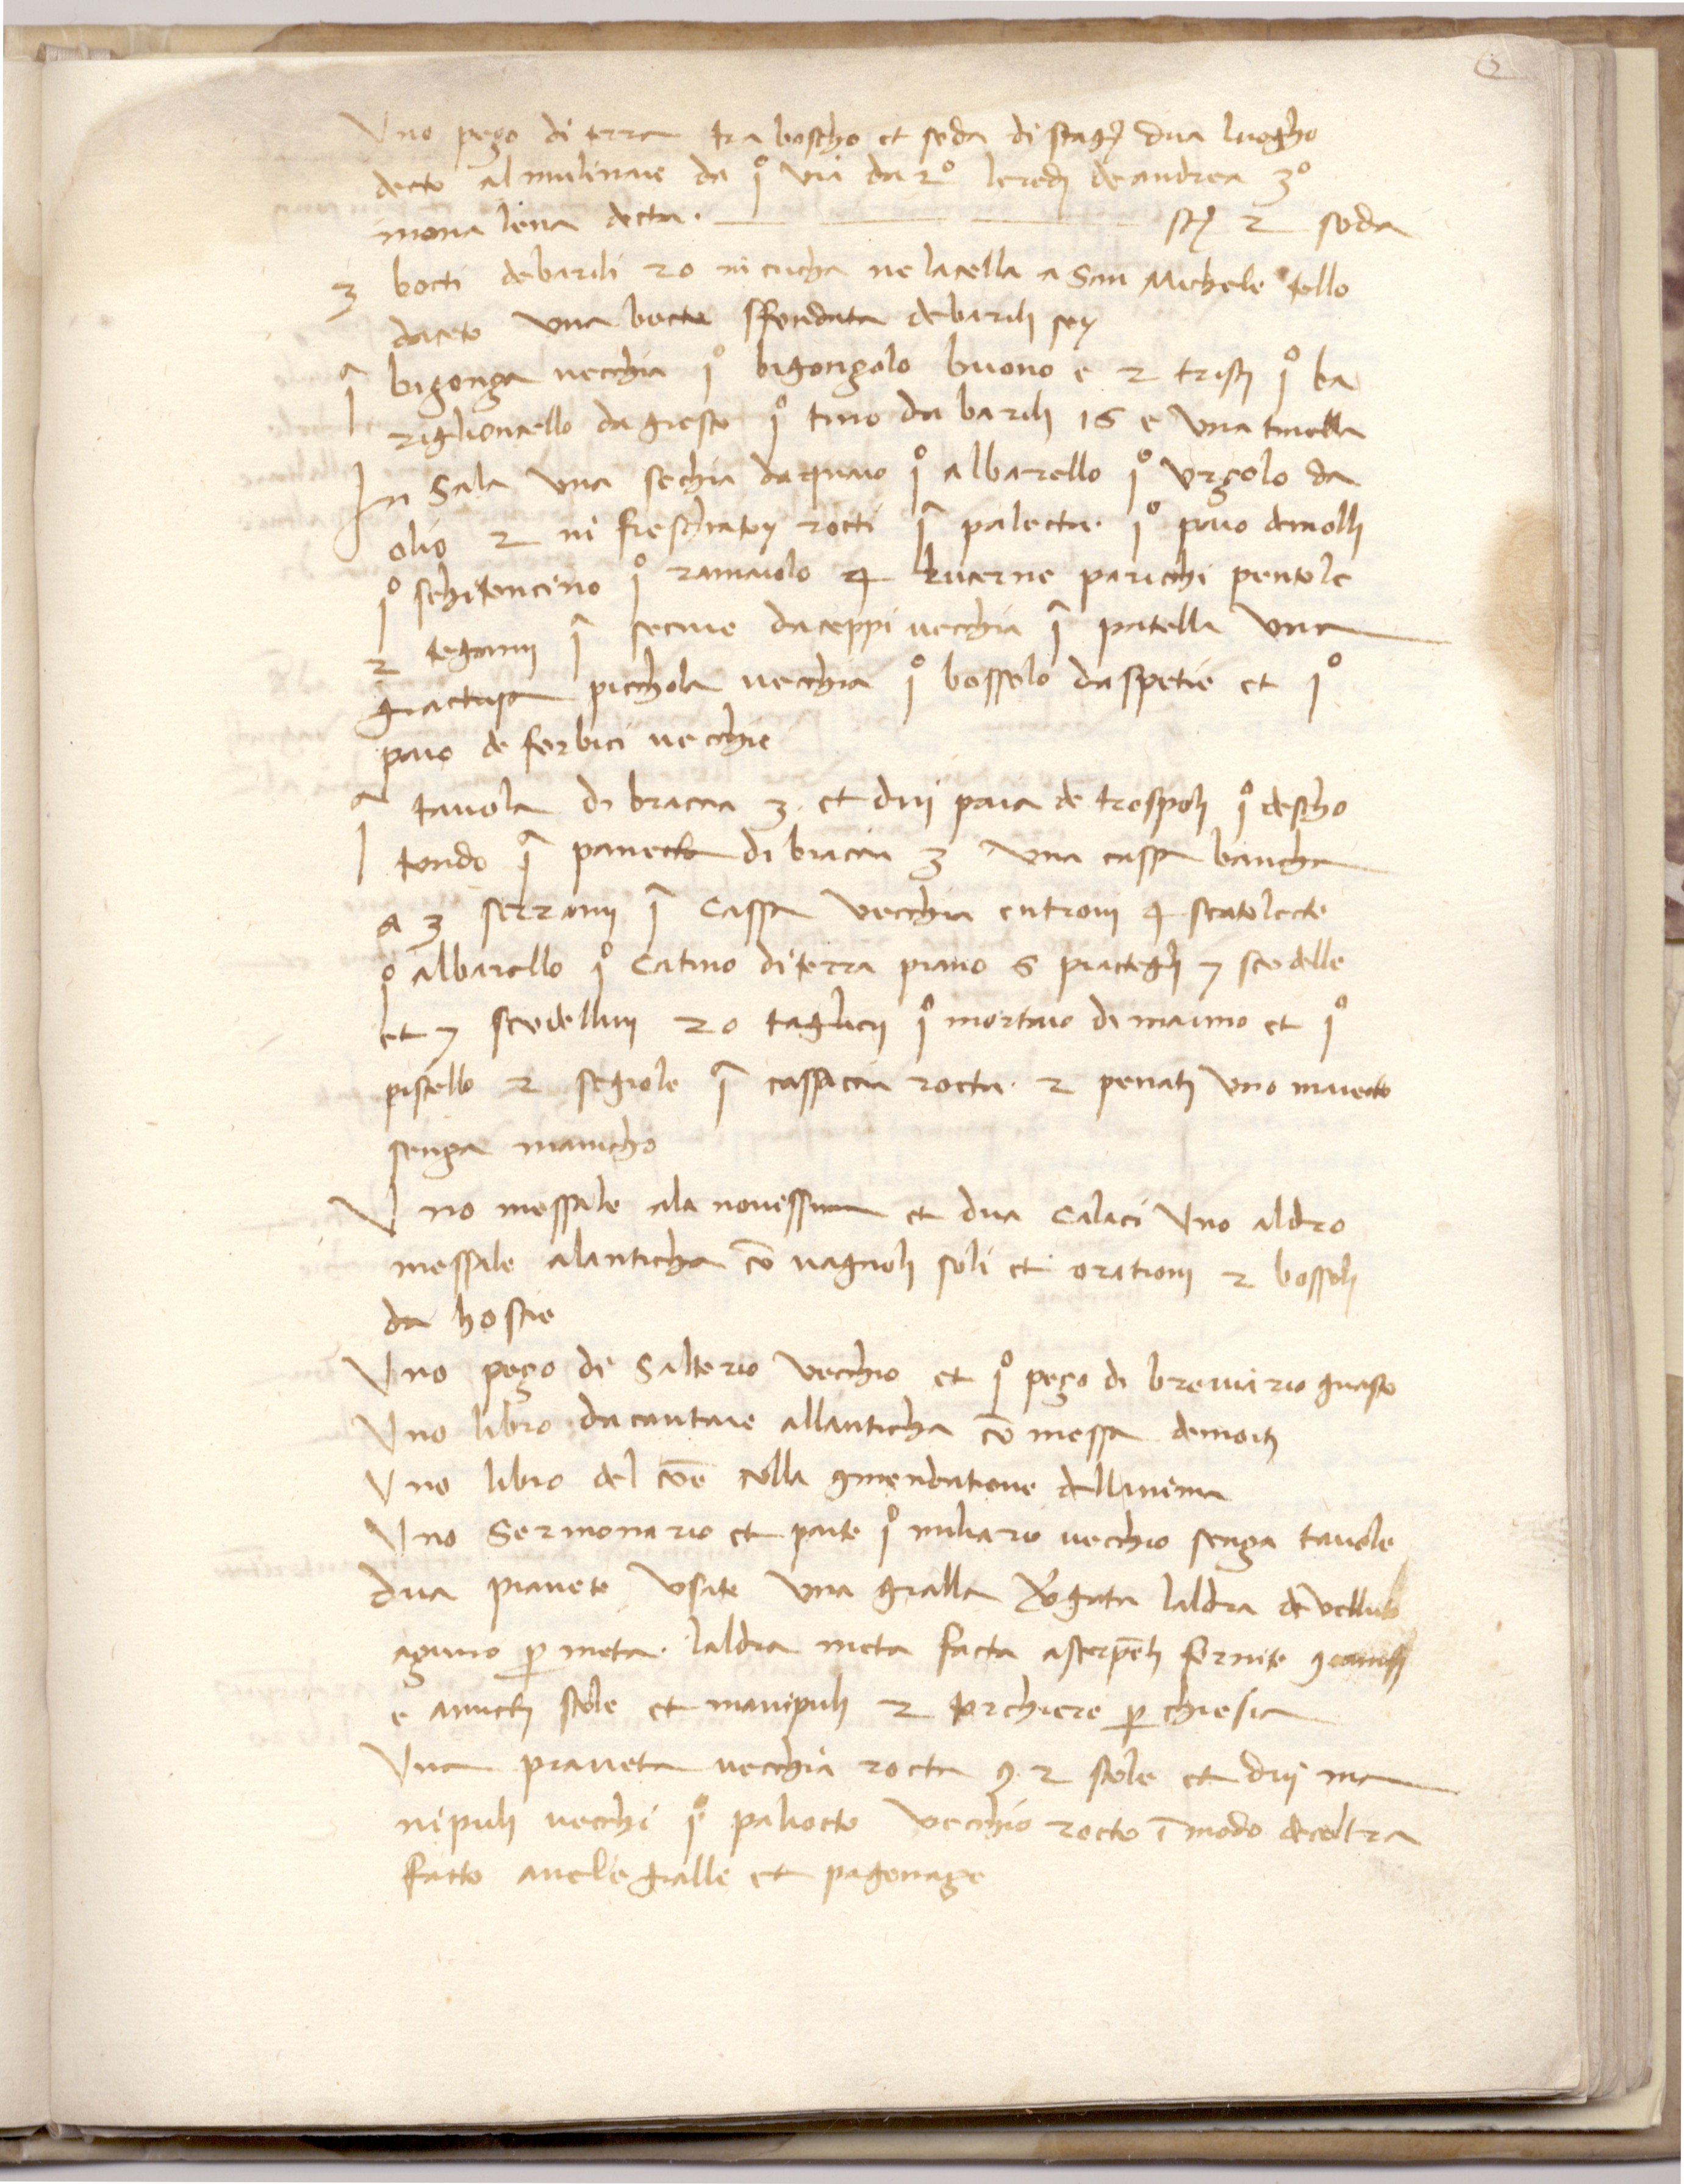 Uno pezo di terra tra boscho et soda di staᵹ dua luogho
decto al mulinare da jº via da 2º leredj de andrea 3º
mona lena decta. stᵹ 2 soda
3 bocti de barili 20 in cucha ne la cella a San Michele tollo
daceto una bocte sfondata de barili sey
jª bigonza vecchia jº bigonzolo buono e 2 tristj jº ba
riglioncello dagresto jº tino da barilj 16 e una tinella
In Sala una sechia daquaio jº albarello jº urzolo da
olio 2 in frescatoy rotti jª palecta. jº paio demollj
jº schidoncino jº ramaiolo 4 lucerne parichi pentole
2 teganij jª secure daceppi vecchia jª patella una
gractusa picchola vecchia jº bossolo da spetie et jº
paio de forbici vecchie
jª tavola di braccia 3. et dui paia de trespolj jº descho
tondo jª panecta di braccia 3 una cassa bancha
a 3 serramj jª Cassa vecchia entrovj 4 scatolecte
jº albarello jº Catino di terra piano 6 piactegli 7 scodelle
et 7 scodellinj 20 taglierj jº mortaio di marmo et jº
pistello 2 segiole jª cassaccia rocta. 2 penatj uno marecto
senza manicho
Uno messale ala novissima et dua Calaci Uno aldro
messale alanticha cō vagnolj soli et orationj 2 bossolj
da hostie
Uno pezo de Salterio vecchio et jº pezo di breviario guasto
Uno libro da cantare allanticha cō messa demortj
Uno libro del coē colla 9mendatione dellanima
Uno Sermonario et parte jº miliario vecchio senza tavole
dua pianete usate una gialla vergata laldra de velluto
azurro p meta. laldra meta facta a serpētj fornite 9 camisj
e amictj stole et manipulj 2 torchiere p chiesia
Una pianeta vecchia rocta 9 2 stole et dui ma
nipulj vecchi jº paliocto vecchio rocto ī modo de coltra
facto avele gialle et pagonaze